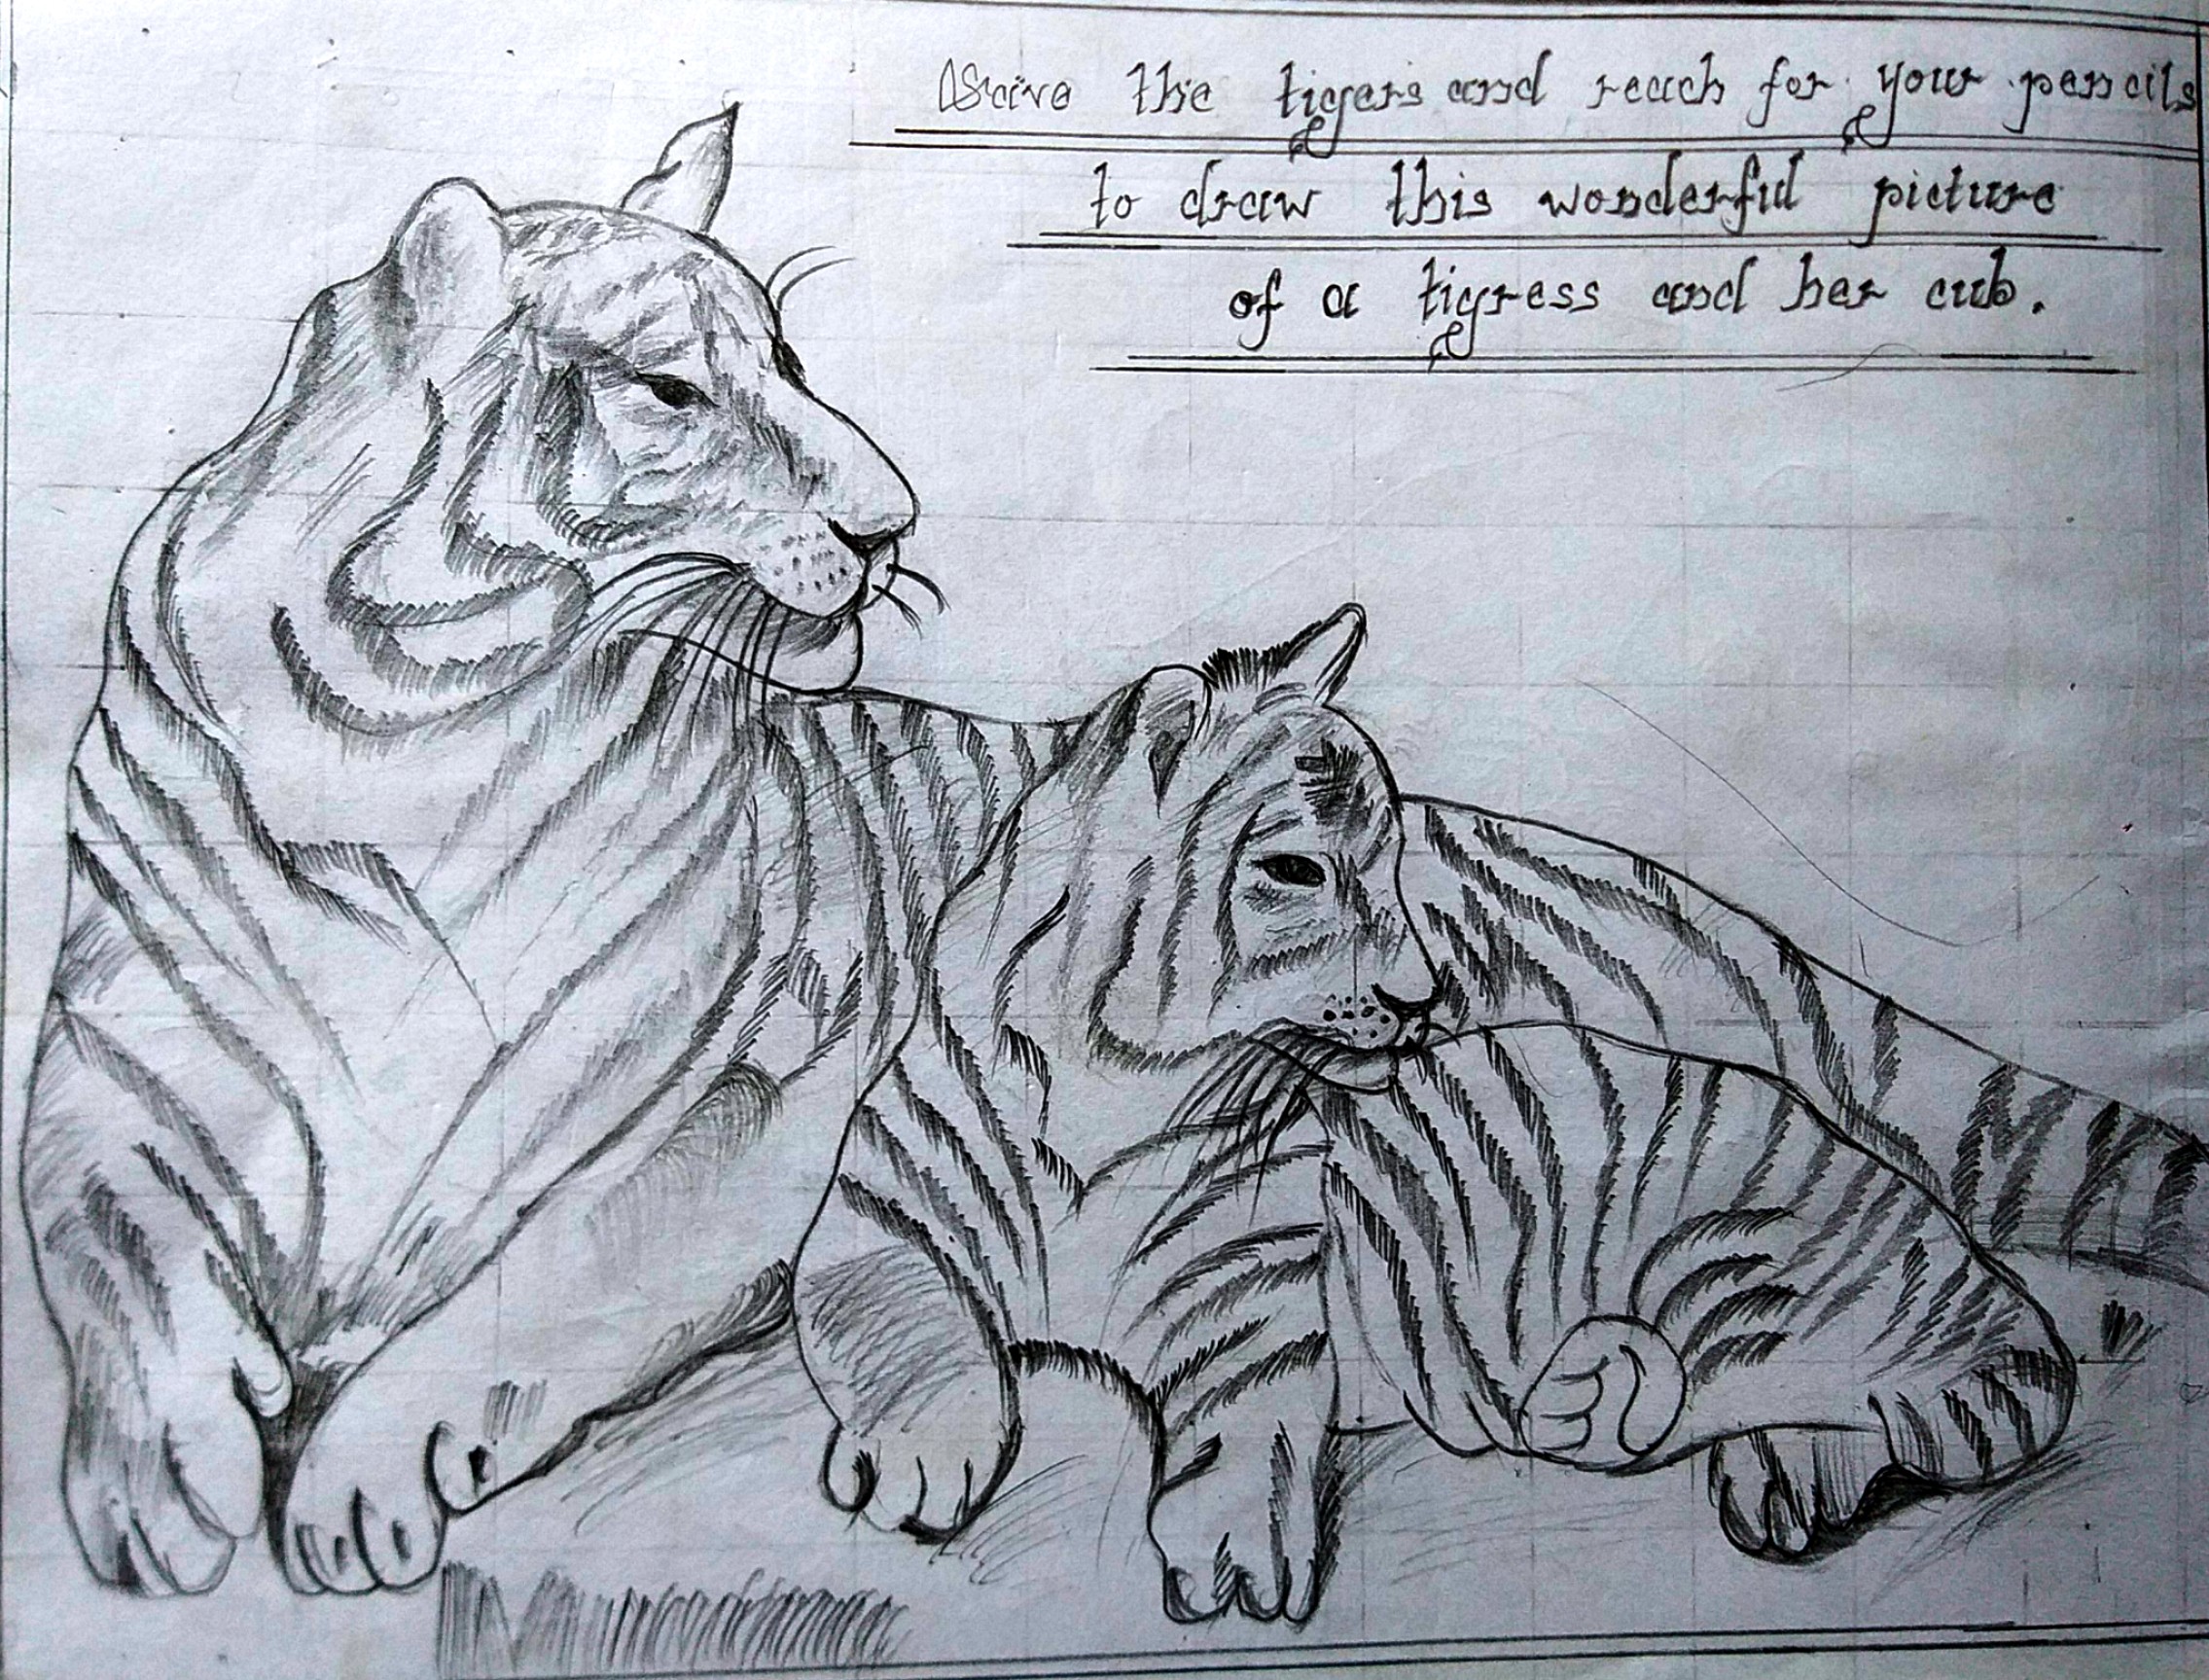 Save the tigers and reach for your pencils
to draw this wonderful picture
of a tigress and her cub.